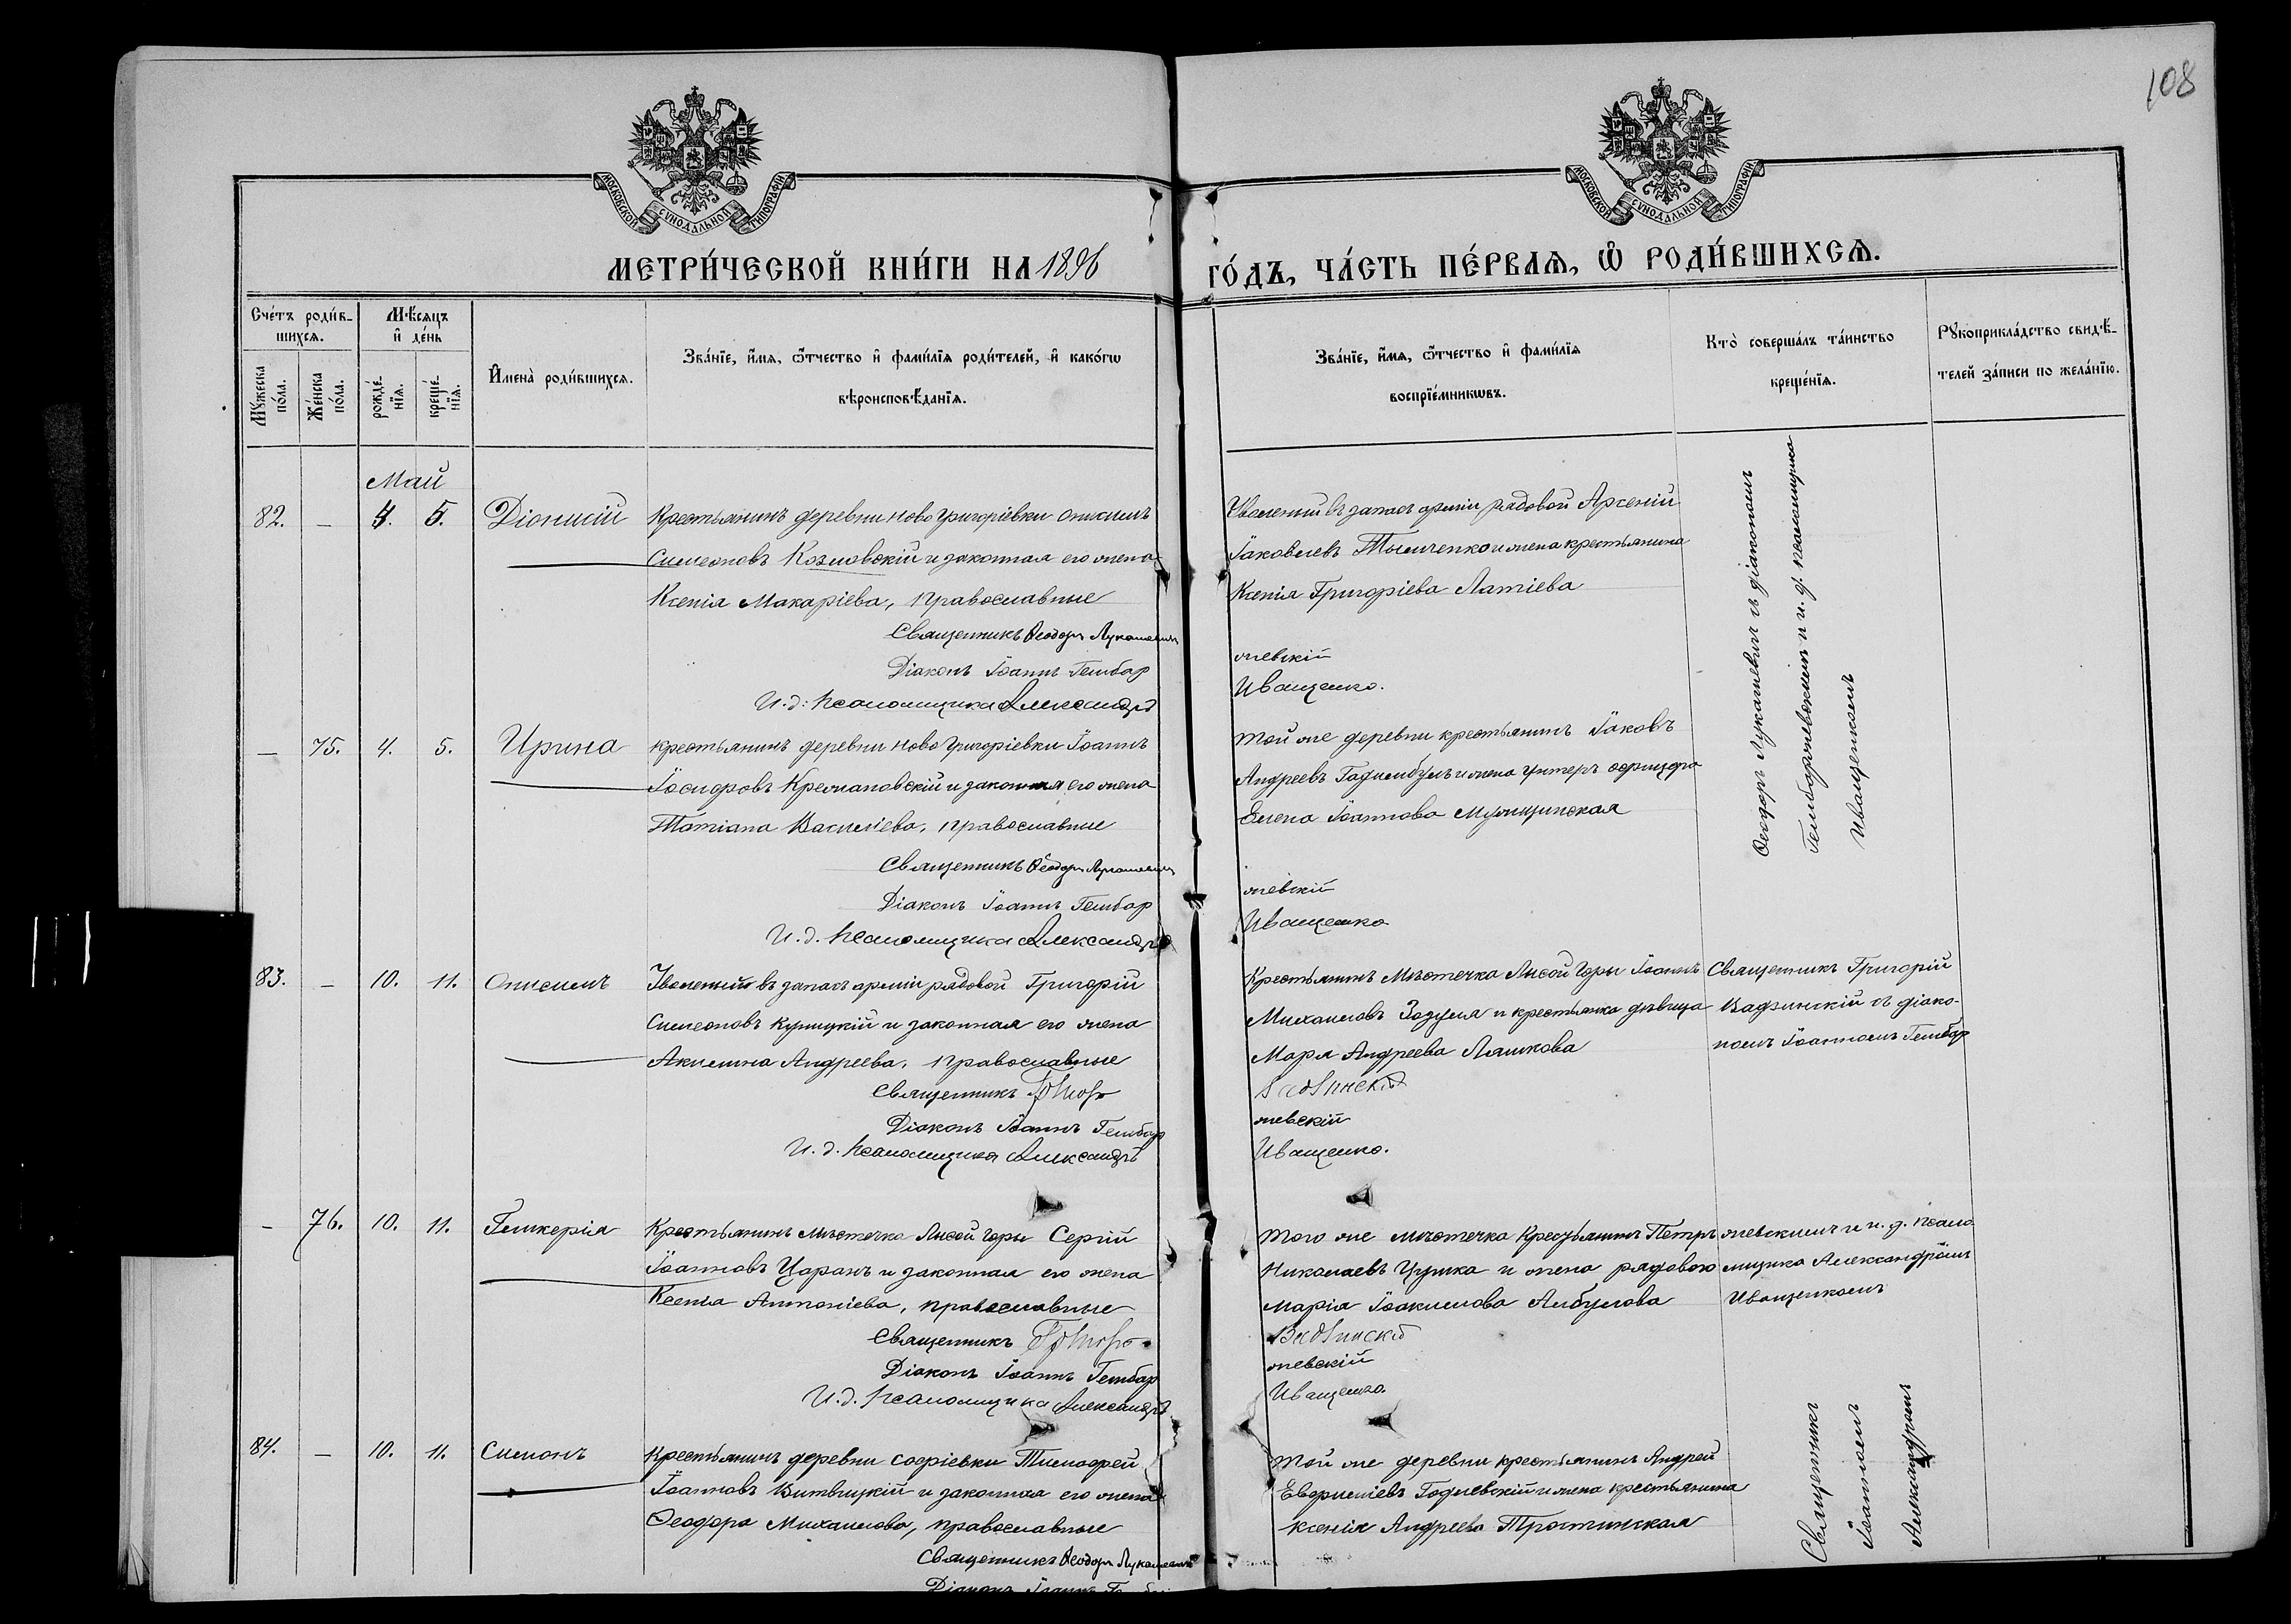 108
МОСКОВСКОЙ СѴНОДАЛЬНОЙ ТИПОГРАФІИ
МОСКОВСКОЙ СѴНОДАЛЬНОЙ ТИПОГРАФІИ
МЕТРИ́ЧЕСКОЙ КНИ́ГИ НА 1896
ГО́ДЪ, ЧА́СТЬ ПЕ́РВАѦ, Ѡ РОДИ́ВШИХСѦ.
Сче́тъ роди́в-
шихсѧ.
Мꙋ́жеска по́ла.
Же́нска по́ла.
Мѣ́сѧцъ
и҆ де́нь
рожде́-
нїѧ.
креще́-
нїѧ.
И҆мена̀ роди́вшихсѧ.
Зва́нїе, и҆́мѧ, ѻ҆́тчество и҆ фами́лїѧ роди́телей, и҆ како́гѡ
вѣроисповѣ́данїѧ.
Зва́нїе, и҆́мѧ, ѻ҆́тчество и҆ фами́лїѧ
воспрїе́мникѡвъ.
Кто̀ соверша́лъ та́инство
креще́нїѧ.
Рꙋкоприкла́дство свидѣ́-
телей за́писи по жела́нїю.
Май
82. — 4. 5. Діонисій
Крестьянинъ деревни Ново Григоріевки Онисимъ
Симеоновъ Козловскій и законная его жена
Ксенія Макаріева, православные
Священникъ Ѳеодоръ Лукашевич
Діаконъ Іоаннъ Гембар
И. д. Псаломщика Александръ
Уволенный въ запасъ арміи рядовой Арсеній
Іаковлевъ и жена крестьянина
Ксенія Григоріева
жевскій
Иващенко.
Ѳеодоръ Лукашевичъ съ діакономъ
Гембаржевскимъ и и. д. псаломщика
Иващенкомъ
— 75. 4. 5. Ирина
крестьянинъ деревни Ново Григоріевки Іоаннъ
Іосифовъ и законная его жена
Татіана Василіева, православные
Священникъ Ѳеодоръ Лукашевич
Діаконъ Іоаннъ Гембар
И. д. Псаломщика Александръ
Той же деревни крестьянинъ Іаковъ
Андреевъ и жена унтеръ офицера
Елена Іоаннова
жевскій
Иващенко
83. — 10. 11. Онисимъ
Уволенный въ запасъ арміи рядовой Григорій
Симеоновъ Куницкій и законная его жена
Акилина Андреева, православные
Священникъ Григорій
Діаконъ Іоаннъ Гембар
И. д. Псаломщика Александръ
Крестьянинъ Мѣстечка Лысой Горы Іоаннъ
Михаиловъ Зозуля и крестьянка дѣвица
Марѳа Андреева Ляшкова
Вадзинскій
жевскій
Иващенко.
Священникъ Григорій
Вадзинскій съ діако-
номъ Іоанномъ Гембар
— 76. 10. 11. Гликерія
Крестьянинъ мѣстечка Лысой Горы Сергій
Іоанновъ Царанъ и законная его жена
Ксенія Антоніева, православные
Священникъ Григорій
Діаконъ Іоаннъ Гембар
И. д. Псаломщика Александръ
Того же мѣстечка Крестьянинъ Петръ
Николаевъ и жена рядового
Марія Іоакимова Албулова
Вадзинскій
жевскій
Иващенко
жевскимъ и и. д. псало
мщика Александромъ
Иващенкомъ
84. — 10. 11. Симонъ
Крестьянинъ деревни Софіевки Тимоѳей
Іоанновъ Витвицкій и законная его жена
Ѳеодора Михаилова, православные
Священникъ Ѳеодоръ Лукашевич
Діаконъ Іоаннъ
Той же деревни крестьянинъ Андрей
Евфиміевъ и жена крестьянина
Ксенія Андреева Тростинская
Священникъ
Іоанномъ
Александромъ